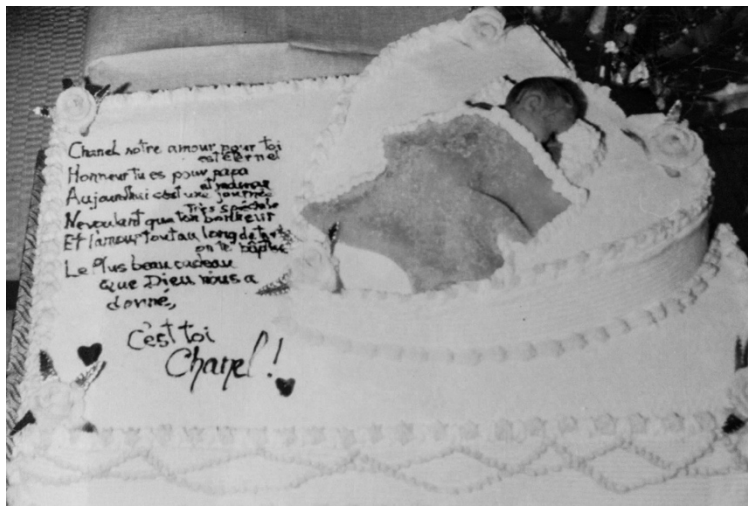 Chanel notre amour pour toi
est éternel
Honneur tu es pour papa
et maman
Aujourd'hui c'est une journée
Très spéciale
Ne voulant que ton bonheur
Et l'amour tout au long de ta vie
on te baptise
Le Plus beau cadeau
que Dieu nous a
donné,
C'est toi
Chanel!